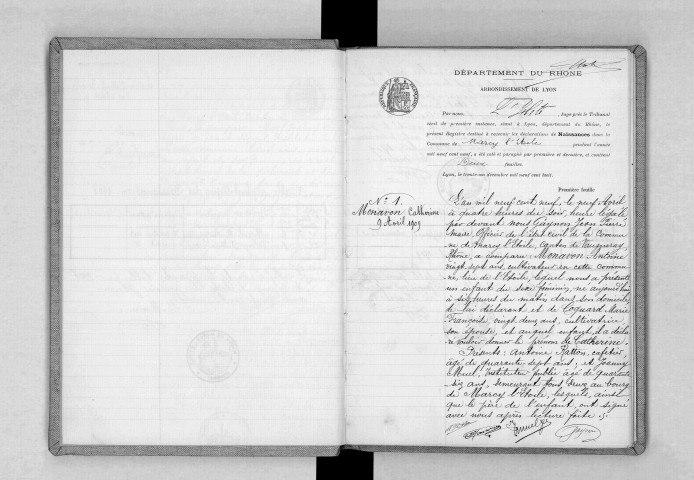 DÉPARTEMENT DU RHÔNE
ARRONDISSEMENT DE LYON
Par nous, , Juge près le Tribunal
civil de première instance, séant à Lyon, département du Rhône, le
présent Registre destiné à recevoir les déclarations de Naissances dans la
Commune de Marcy l'Etoile pendant l'année
mil neuf cent neuf, a été coté et paraphé par première et dernière, et contient
feuilles.
Lyon, le trente-un décembre mil neuf cent huit.
Première feuille
N° 1.
Monavon Catherine
9 Avril 1909
L'an mil neuf cent neuf, le neuf Avril
à quatre heures du soir, heure légale
par devant nous Gaynon Jean Pierre
maire, Officier de l'état civil de la Commu
ne de Marcy l'Etoile, canton de Vaugneray
Rhône, a comparu Monavon Antoine
vingt sept ans, cultivateur en cette commu
ne, lieu de l'Etoile, lequel nous a présenté
un enfant du sexe féminin, né aujourd'hui
à six heures du matin dans son domicile
de lui déclarant et de Coquard Marie
Françoise, vingt deux ans, cultivatrice,
son épouse, et auquel enfant, il a décla
ré vouloir donner le prénom de Catherine.
Présents : Antoine Ratton, cafetier,
âgé de quarante sept ans, et Joanny
Muel, Instituteur public âgé de quarante
six ans, demeurant tous deux au bourg
de Marcy l'Etoile, lesquels, ainsi
que le père de l'enfant, ont signé
avec nous après lecture faite.